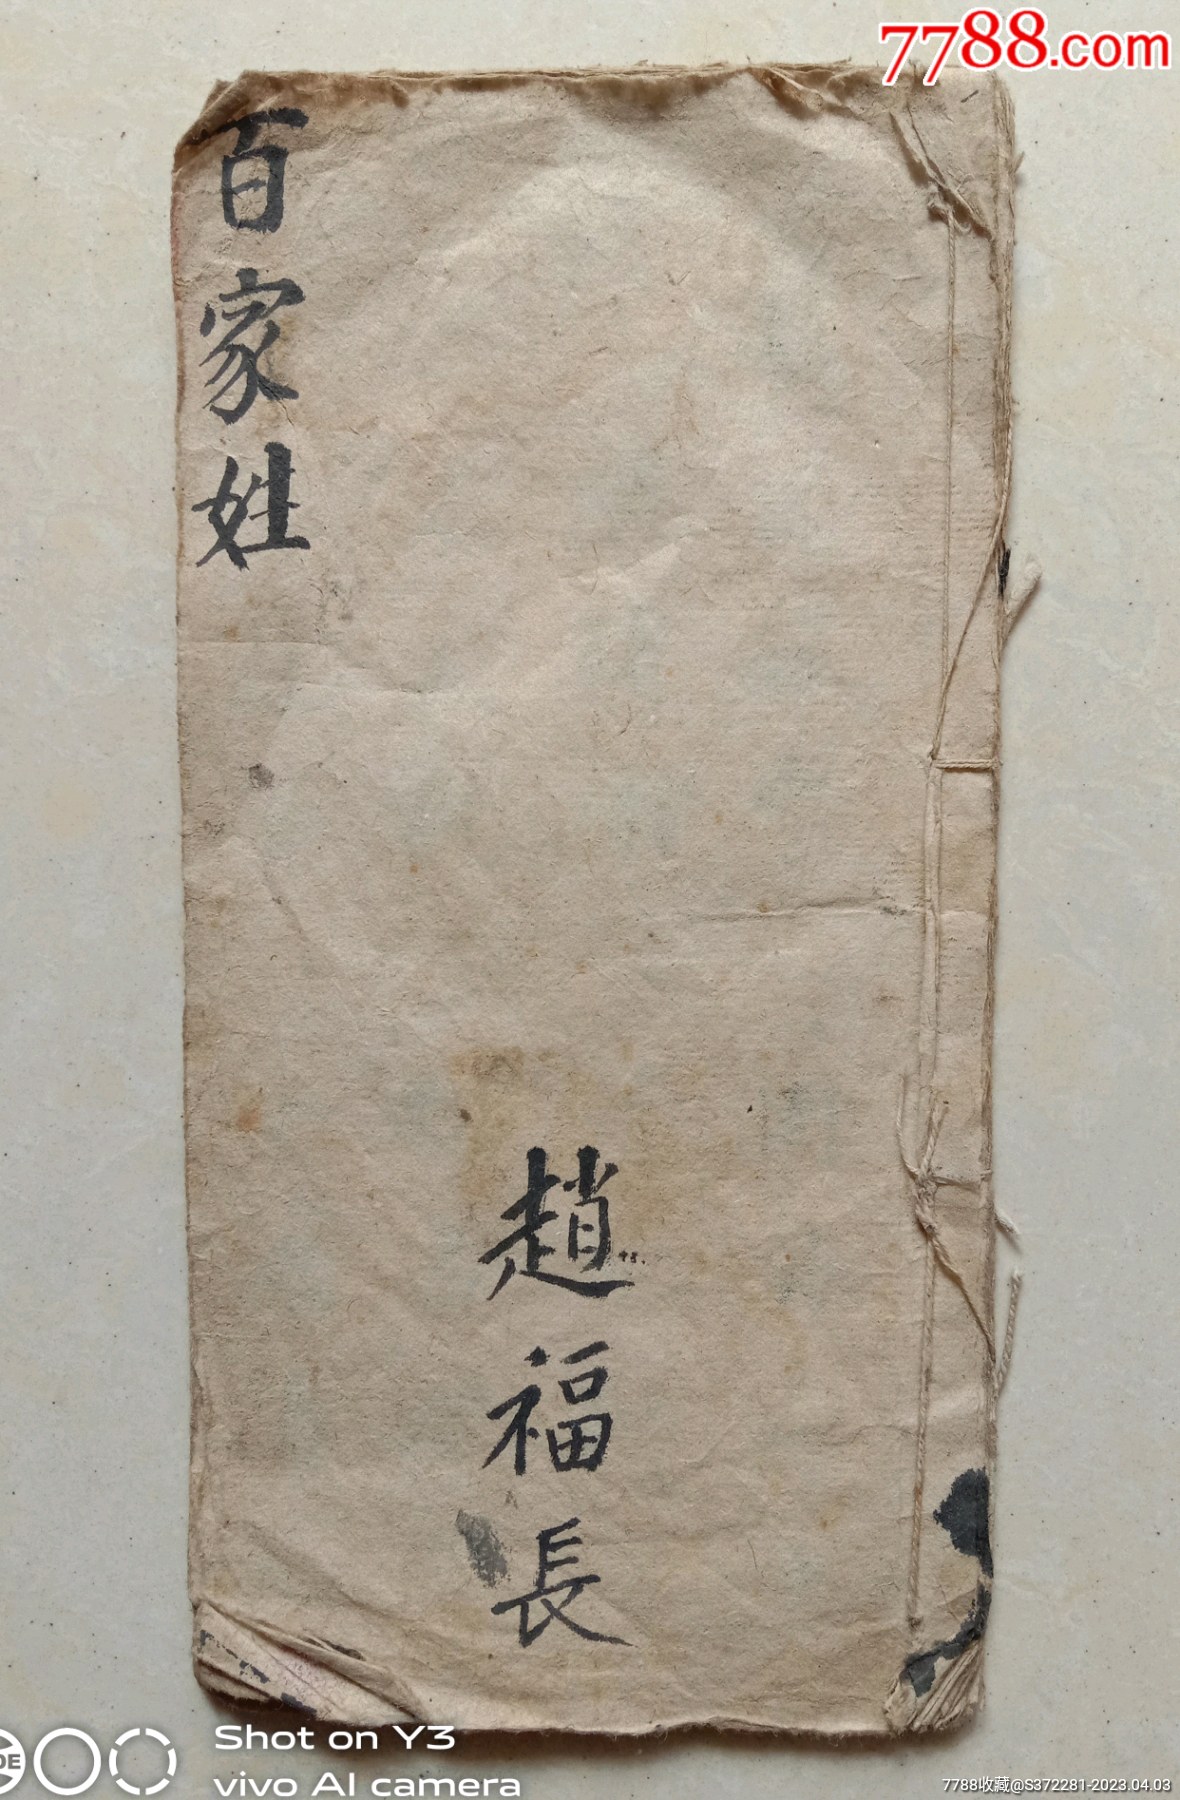 7788.com
百家姓
趙福長
Shot on Y3
vivo AI camera
7788收藏@S372281-2023.04.03